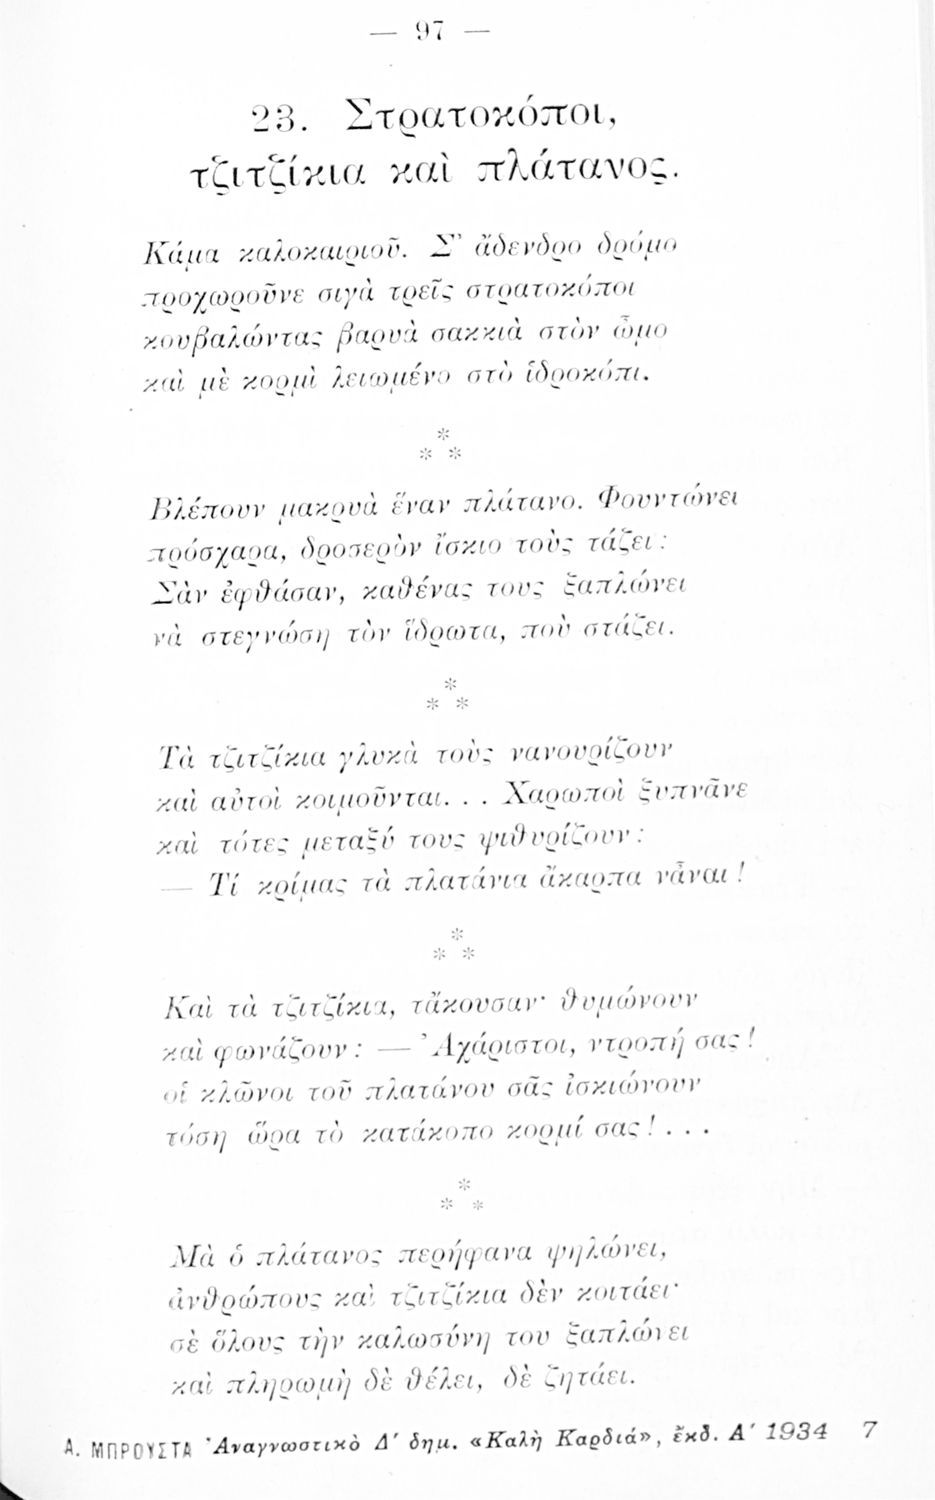 — 97 —
23. Στρατοκόποι,
τζιτζίκια καὶ πλάτανος.
Κάμα καλοκαιριοῦ. Σ’ ἄδενδρο δρόμο
προχωροῦνε σιγὰ τρεῖς στρατοκόποι
κουβαλώντας βαρυὰ σακκιὰ στὸν ὦμο
καὶ μὲ κορμὶ λειωμένο στὸ ἱδροκόπι.
*
* *
Βλέπουν μακρυὰ ἕναν πλάτανο. Φουντώνει
πρόσχαρα, δροσερὸν ἴσκιο τοὺς τάζει :
Σὰν ἐφθάσαν, καθένας τους ξαπλώνει
νὰ στεγνώση τὸν ἵδρωτα, ποὺ στάζει.
*
* *
Τὰ τζιτζίκια γλυκὰ τοὺς νανουρίζουν
καὶ αὐτοὶ κοιμοῦνται. . . Χαρωποὶ ξυπνᾶνε
καὶ τότες μεταξύ τους ψιθυρίζουν :
— Τί κρίμας τὰ πλατάνια ἄκαρπα νἆναι !
*
* *
Καὶ τὰ τζιτζίκια, τἄκουσαν· θυμώνουν
καὶ φωνάζουν : — Ἀχάριστοι, ντροπή σας !
οἱ κλῶνοι τοῦ πλατάνου σᾶς ἰσκιώνουν
τόση ὥρα τὸ κατάκοπο κορμί σας ! . . .
*
* *
Μὰ ὁ πλάτανος περήφανα ψηλώνει,
ἀνθρώπους καὶ τζιτζίκια δὲν κοιτάει·
σὲ ὅλους τὴν καλωσύνη του ξαπλώνει
καὶ πληρωμὴ δὲ θέλει, δὲ ζητάει.
Α. ΜΠΡΟΥΣΤΑ Ἀναγνωστικὸ Δ′ δημ. «Καλὴ Καρδιά», ἔκδ. Α′ 1934 7